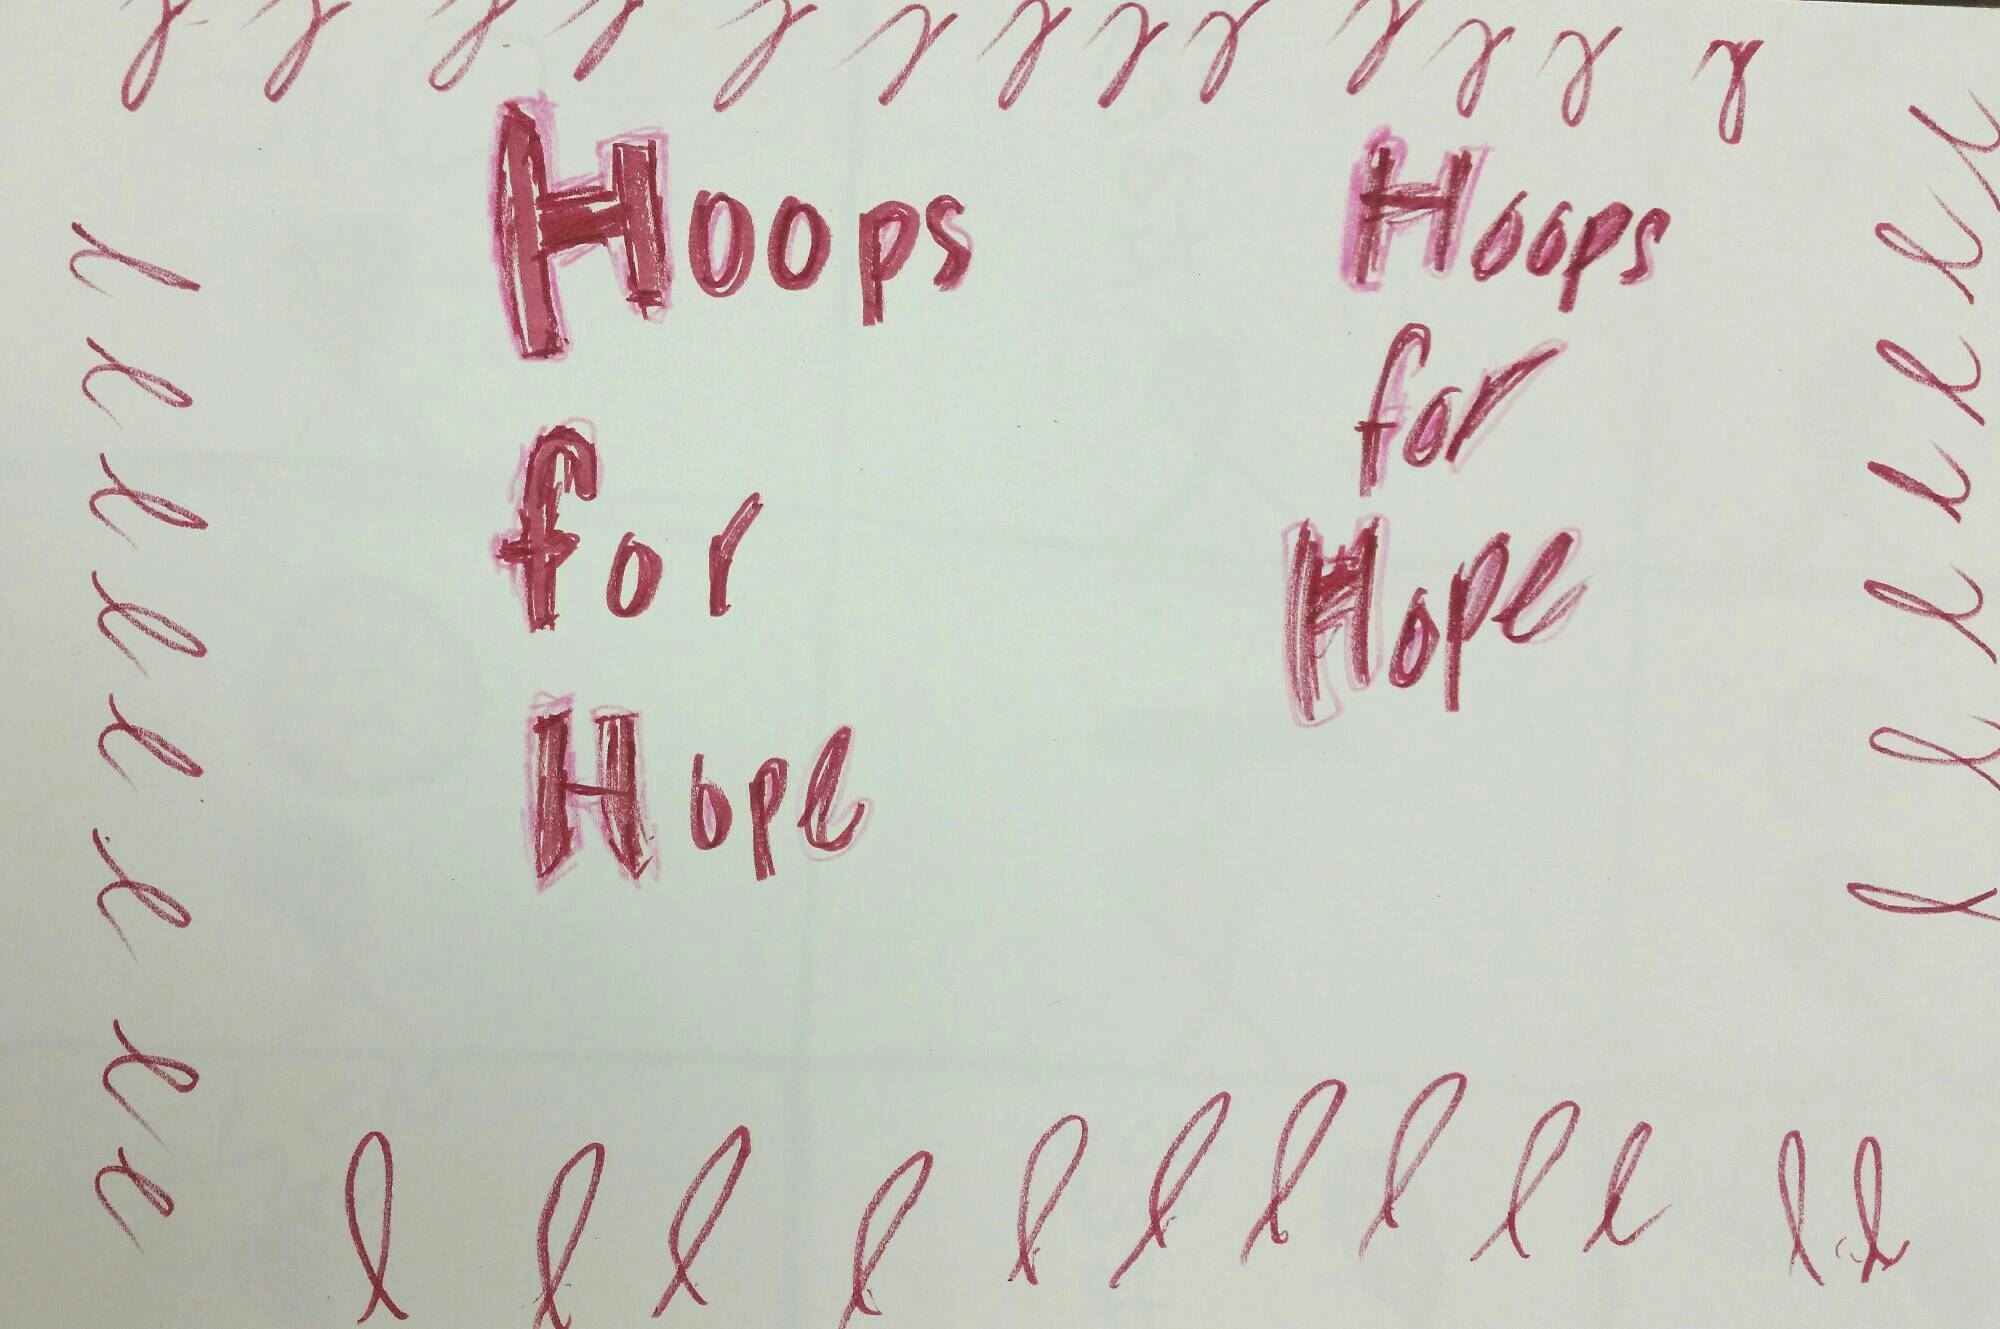 Hoops
for
Hope
Hoops
for
Hope